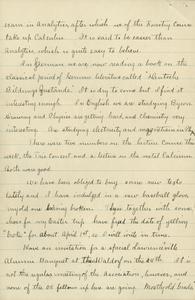 learn in Analytics after which we of the Faculty Course
take up Calculus. It is said to be easier than
Analytics which is quite easy to believe.
In German we are now reading a book on the
classical period of German literature called "Deutsche
Bildungszustände." It is dry to some but I find it
interesting enough. In English we are studying Byron.
Greeny and Physics are getting hard and Chemistry very
interesting. Are studying electricity and magnetism in
There were two numbers in the lecture course this
week, the Trio Concert and a lecture on the metal Calcium.
Both were good.
We have been obliged to buy some new books
lately and I have indulged in a new baseball glove,
 these together with some
 for my Easter trip have fixed the date of getting
"broke" for about April 1st, so I will write in time.
Have an invitation for a special Lawrenceville
Alumni Banquet at the Waldorf on the 25th. It is
not the regular meeting of the Association, however, and
none of the fellows up here are going. Mostly old grads